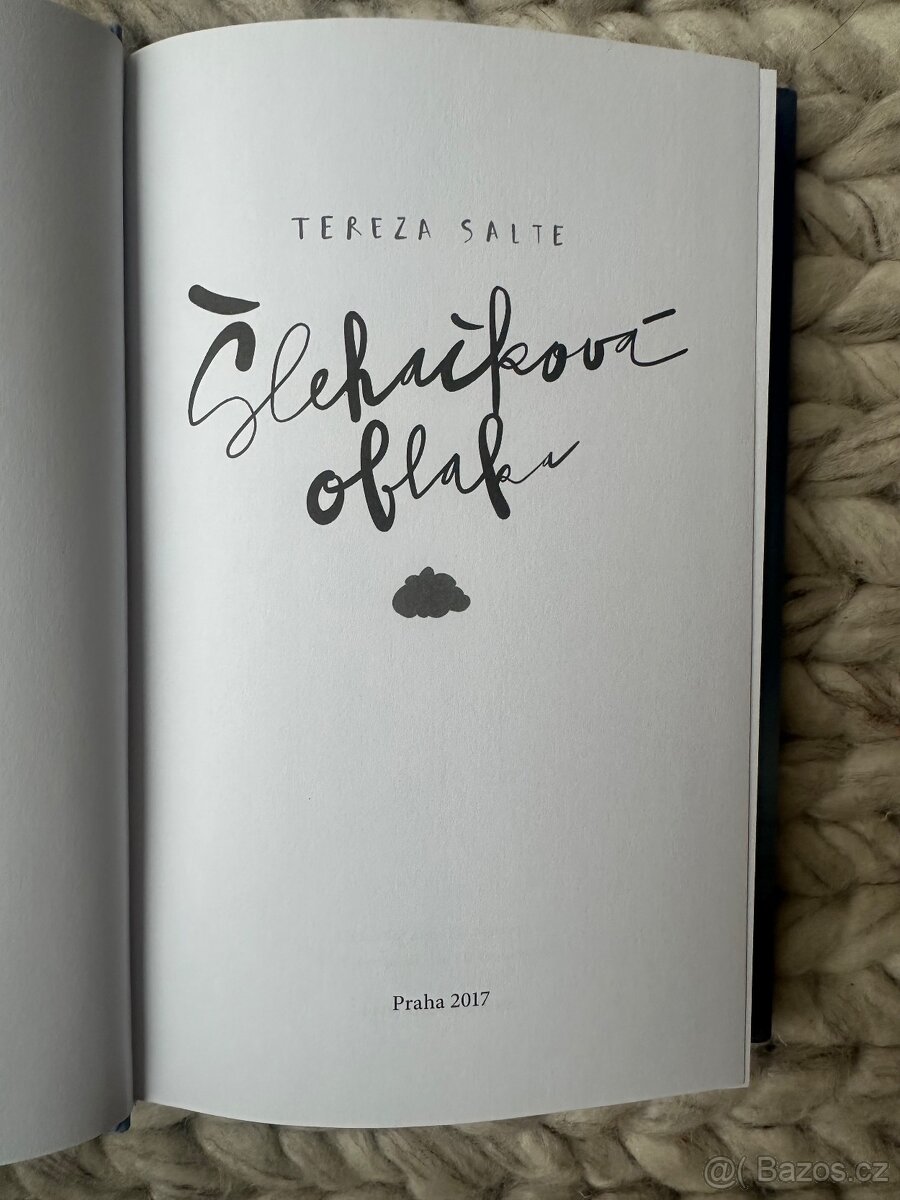 TEREZA SALTE
Šlehačková
oblaka
Praha 2017
@( Bazos.cz